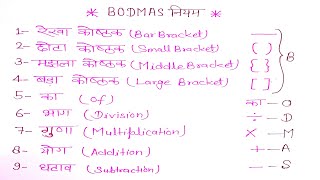 * BODMAS नियम *
1- रेखा कोष्ठक (Bar Bracket) —
2- छोटा कोष्ठक (Small Bracket) ( )
3- मझला कोष्ठक (Middle Bracket) { } B
4- बड़ा कोष्ठक (Large Bracket) [ ]
5- का (of) का - O
6- भाग (Division) ÷ - D
7- गुणा (Multiplication) × - M
8- योग (Addition) + - A
9- घटाव (Subtraction) — - S